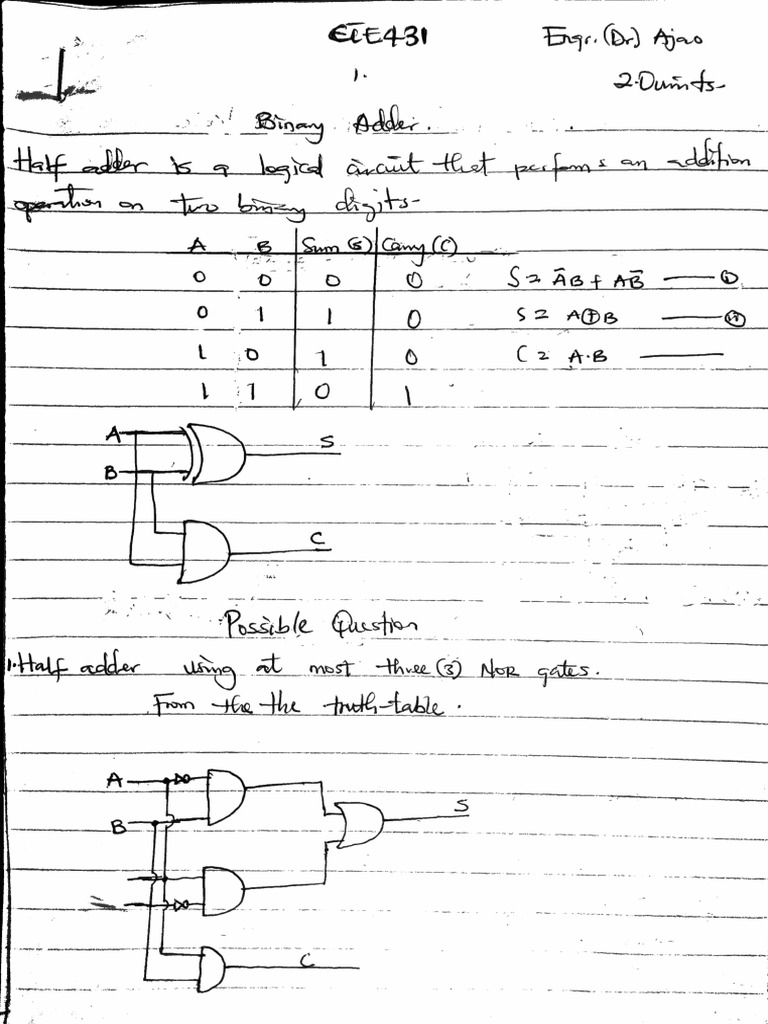 ELE431 Engr. (Dr) Ajao
1. 2.0units
Binary Adder.
Half adder is a logical circuit that performs an addition
operation on two binary digits.
A B Sum (S) Carry (C)
0 0 0 0 S = A̅B + AB̅ —— (i)
0 1 1 0 S = A⊕B —— (ii)
1 0 1 0 C = A.B ——
1 1 0 1
A S
B
C
Possible Question
1. Half adder using at most three (3) NOR gates.
From the the truth-table.
A
S
B
C